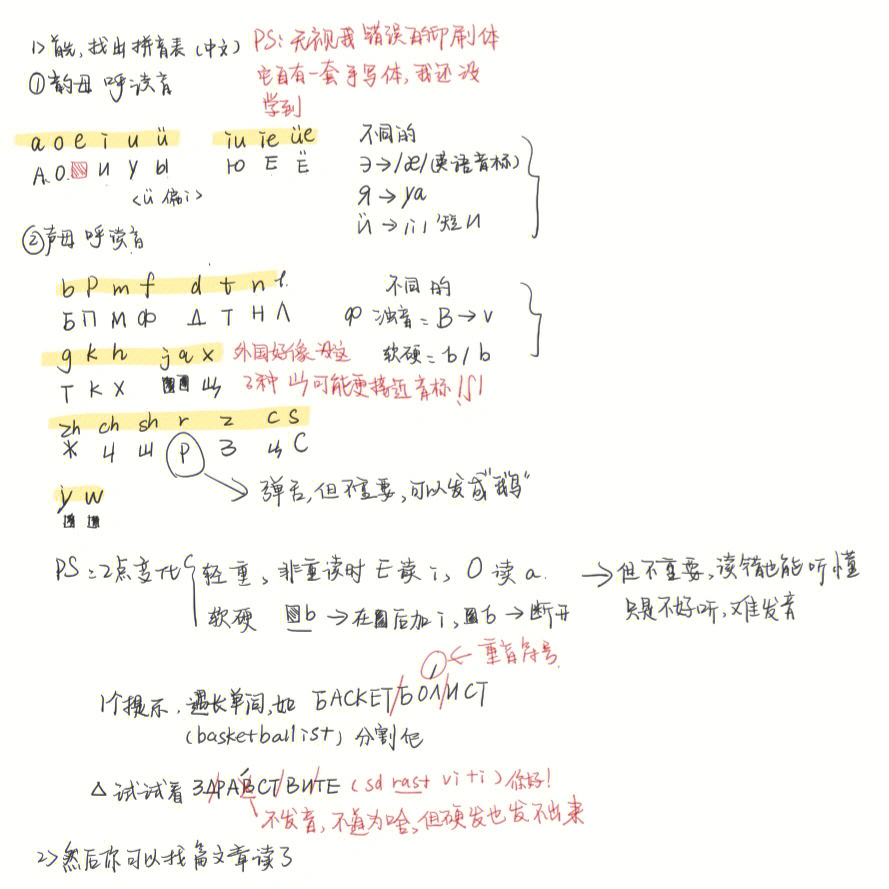 1> 首先,找出拼音表(中文)
PS:无视我错误的印刷体
它自有一套手写体,我还没
学到
①韵母 呼读音
a o e i u ü iu ie üe
A. O. И У Ы Ю Е Ё
<ü 偏i>
不同的
Э→/æ/(英语音标)
Я→ya
Й→/i/ 短И
②声母 呼读音
b p m f d t n l
Б П М Ф Д Т Н Л
不同的
Ф 浊音=В→v
软硬=ь/ъ
g k h j q x
Т К Х
外国好像没这
3种 可能更接近音标/ʃ/
zh ch sh r z c s
Ж Ч Ш Р З Ц С
弹舌,但不重要,可以发成"鹅"
y w
PS:2点变化
轻重,非重读时 Е读i,О读a.
→但不重要,读错也能听懂
只是不好听,难发音
软硬 ь→在 后加i, ъ→断开
重音符号
1个提示,遇长单词,如 БАСКЕТ/БОЛ/ИСТ
(basketballist)分割它
△试试看 ЗД/РАВСТ/ВИ/ТЕ (sd rast vi ti)你好!
不发音,不道为啥,但硬发也发不出来
2>然后你可以找篇文章读了